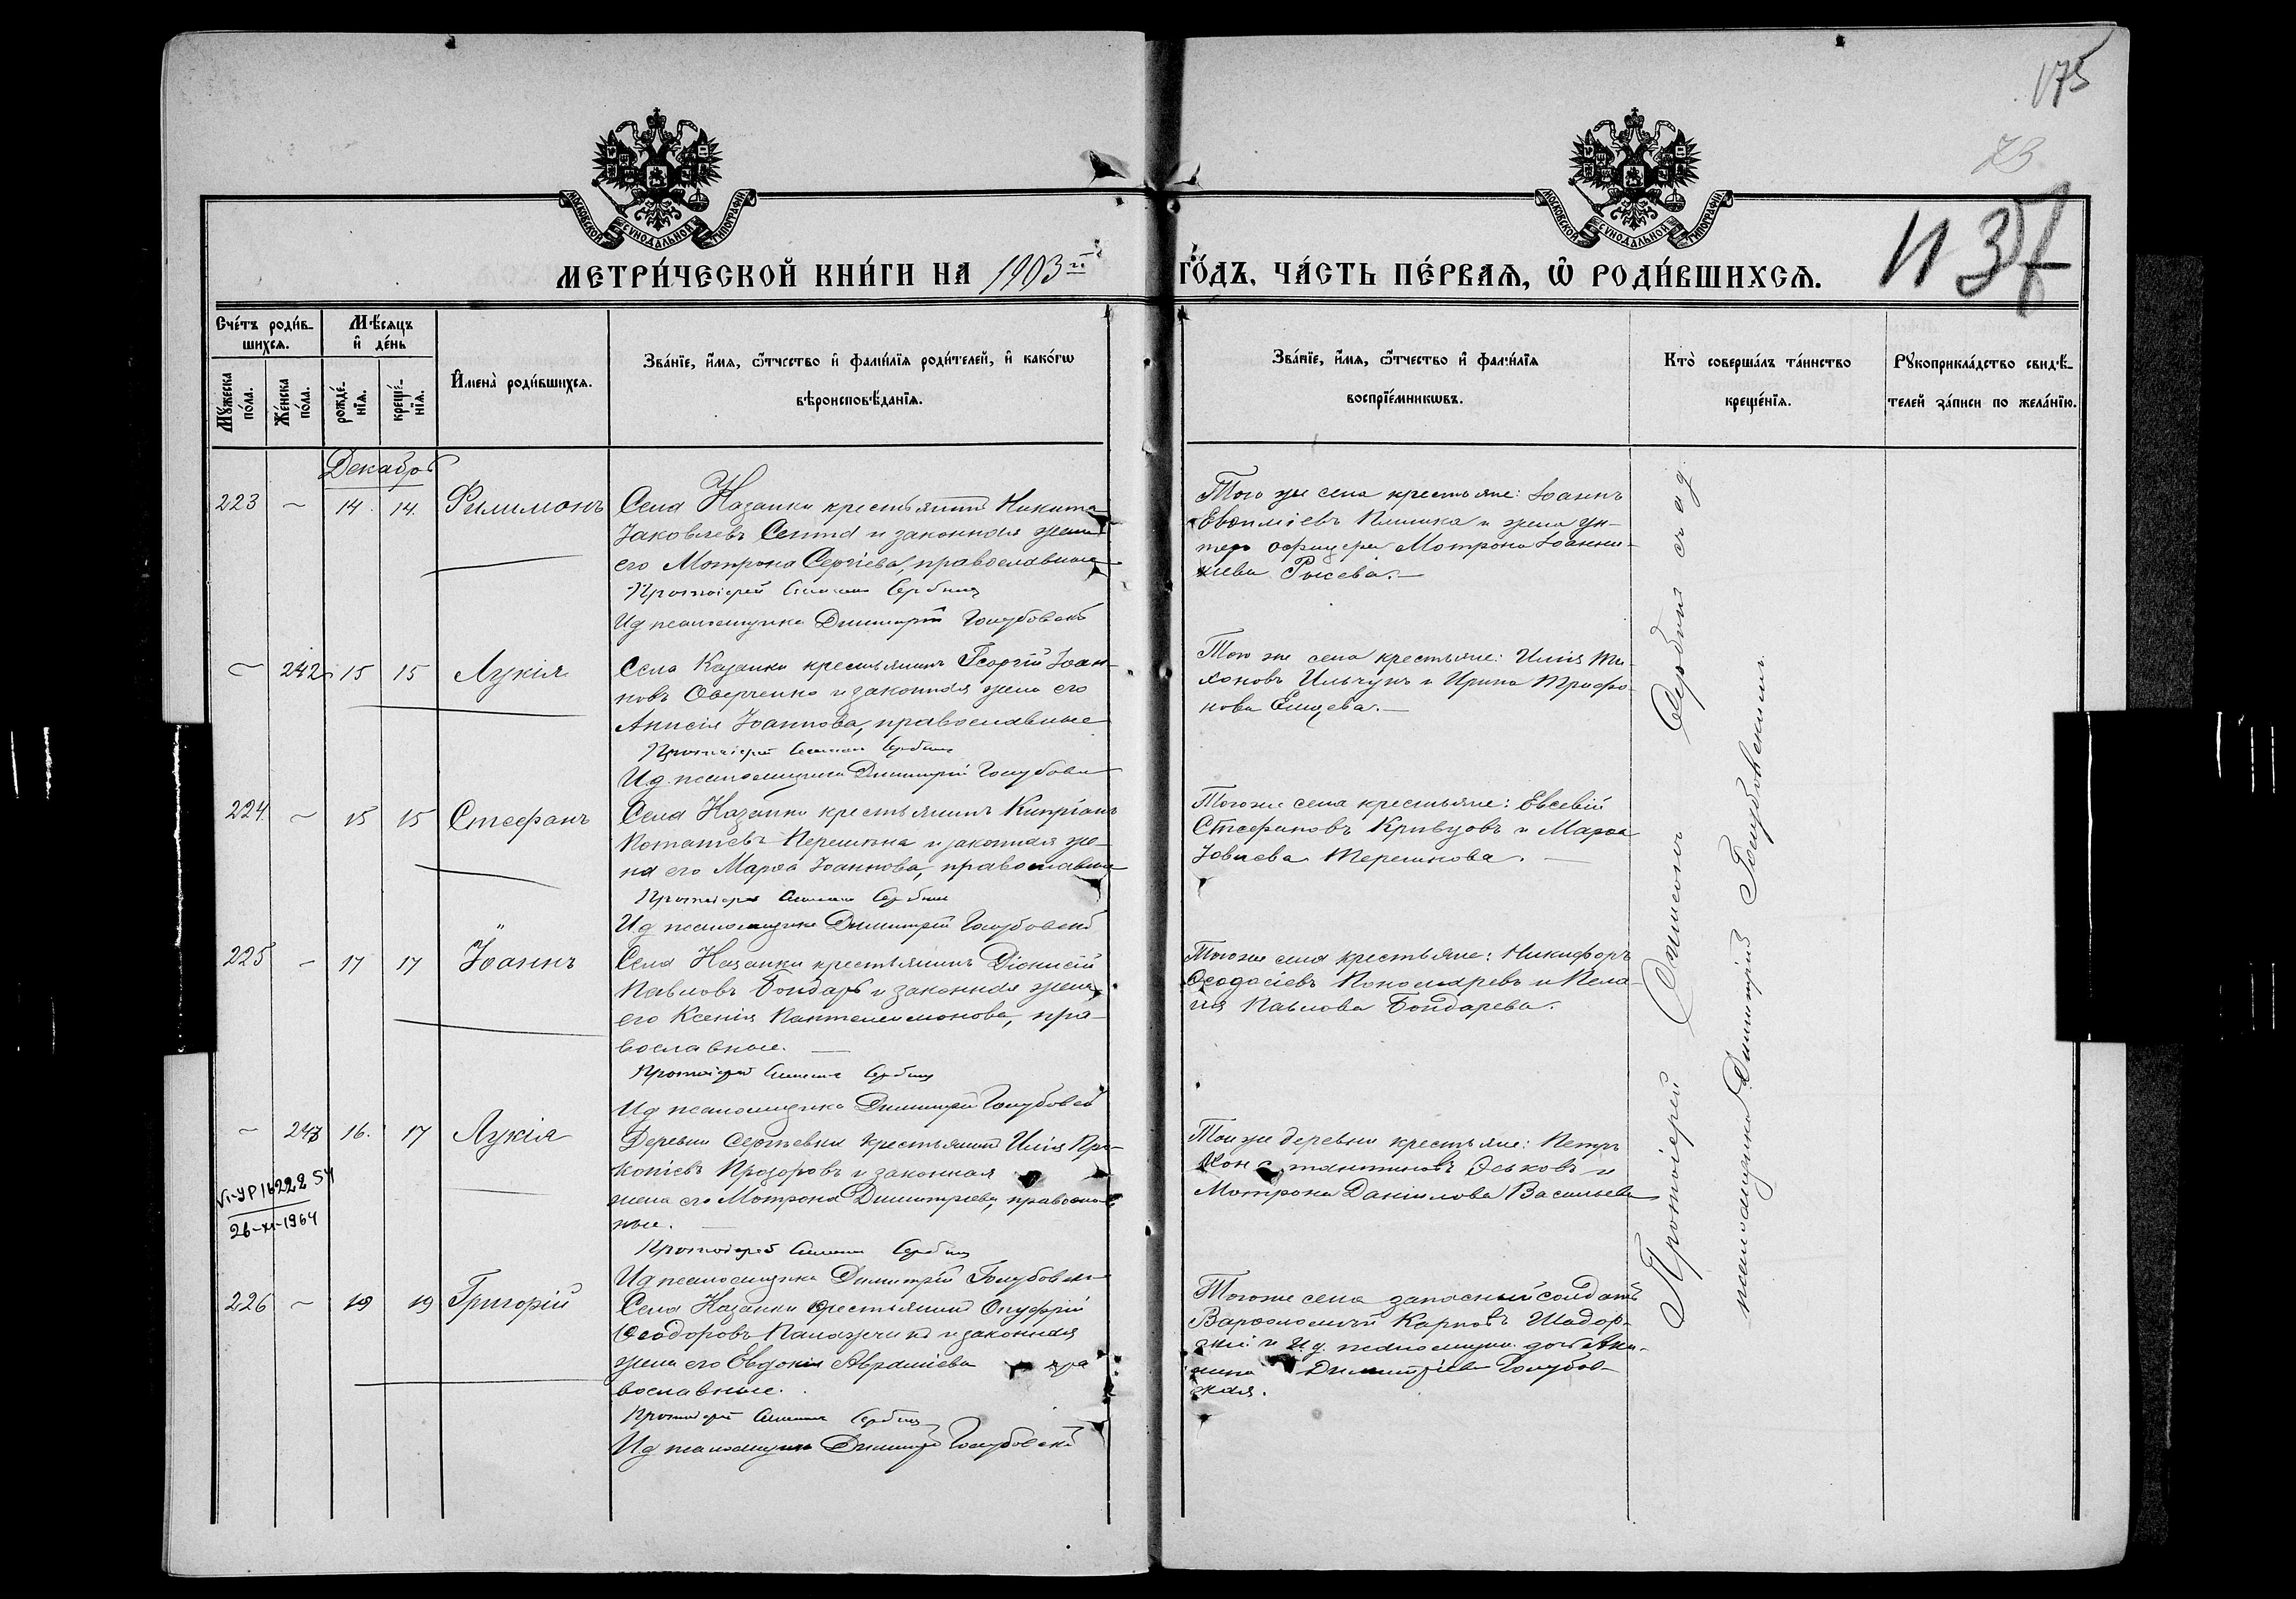 175
73
И 37
МОСКОВСКОЙ СѴНОДАЛЬНОЙ ТИПОГРАФІИ
МОСКОВСКОЙ СѴНОДАЛЬНОЙ ТИПОГРАФІИ
МЕТРИ́ЧЕСКОЙ КНИ́ГИ НА 1903й
ГО́ДЪ, ЧА́СТЬ ПЕ́РВАѦ, Ѡ҆ РОДИ́ВШИХСѦ.
Сче́тъ роди́в-
шихсѧ.
Мѣ́сѧцъ
и҆ де́нь
Мꙋ́жеска по́ла.
Же́нска по́ла.
рожде́-
нїѧ.
креще́-
нїѧ.
И҆мена̀ роди́вшихсѧ.
Зва́нїе, и҆́мѧ, ѻ҆́тчество и҆ фамѝлїѧ роди́телей, и҆ како́гѡ
вѣроисповѣ́данїѧ.
Зва́нїе, и҆́мѧ, ѻ҆́тчество и҆ фамѝлїѧ
воспрїе́мникѡвъ.
Кто̀ соверша́лъ та́инство
креще́нїѧ.
Рꙋкоприкла́дство свидѣ́-
телей за́писи по жела́нїю.
Декабрь
223 — 14 14. Филимонъ
Села Казанки крестьянинъ Никита
Іаковлевъ и законная жена
его Мотрона Сергіева, православные
Протоіерей Симеонъ Сербинъ
Ид псаломщика Димитрій Голубовскій
Того же села крестьяне: Іоаннъ
Евѳиміевъ Климка и жена ун-
теръ офицера Мотрона Іоанни-
кіева Рысева. —
— 242 15 15 Лукія
Села Казанки крестьянинъ Георгій Іоан-
новъ Оверченко и законная жена его
Анисія Іоаннова, православные
Протоіерей Симеонъ Сербинъ
Ид. псаломщика Димитрій Голубовскій
Того же села крестьяне: Илія Ти-
хоновъ Ильчукъ и Ирина Трифо-
нова Елисева. —
224 — 15 15 Стефанъ
Села Казанки крестьянинъ Кипріанъ
Потапіевъ и законная же-
на его Марѳа Іоаннова, православные
Протоіерей Симеонъ Сербинъ
Ид псаломщика Димитрій Голубовскій
Того же села крестьяне: Евсевій
Стефановъ Кривцовъ и Марѳа
Іовлева Терешкова. —
225 — 17 17 Іоаннъ
Села Казанки крестьянинъ Діонисій
Павловъ Бондарь и законная жена
его Ксенія Пантелеимонова, пра-
вославные. —
Протоіерей Симеонъ Сербинъ
Ид псаломщика Димитрій Голубовскій
Того же села крестьяне: Никифоръ
Ѳеодосіевъ Пономаревъ и Пела-
гія Павлова Бондарева.
— 243 16. 17 Лукія
Деревни Сергѣевки крестьянинъ Илія Про-
копіевъ Прозоровъ и законная
жена его Мотрона Димитріева, православ-
ные. —
Протоіерей Симеонъ Сербинъ
Ид псаломщика Димитрій Голубовскій
Той же деревни крестьяне: Петръ
Константиновъ Оськовъ и
Мотрона Даніилова Васильева
26-XI-1964
226 — 19 19 Григорій
Села Казанки крестьянинъ Онуфрій
Ѳеодоровъ и законная
жена его Евдокія Авраміева пра
вославные.
Протоіерей Симеонъ Сербинъ
Ид псаломщика Димитрій Голубовскій
Того же села запасный солдатъ
Варѳоломей Карповъ
и Ид. псаломщи. дочь
Димитріева Голубов-
ская.
Протоіерей Симеонъ Сербинъ съ ид
псаломщика Димитрій Голубовскимъ